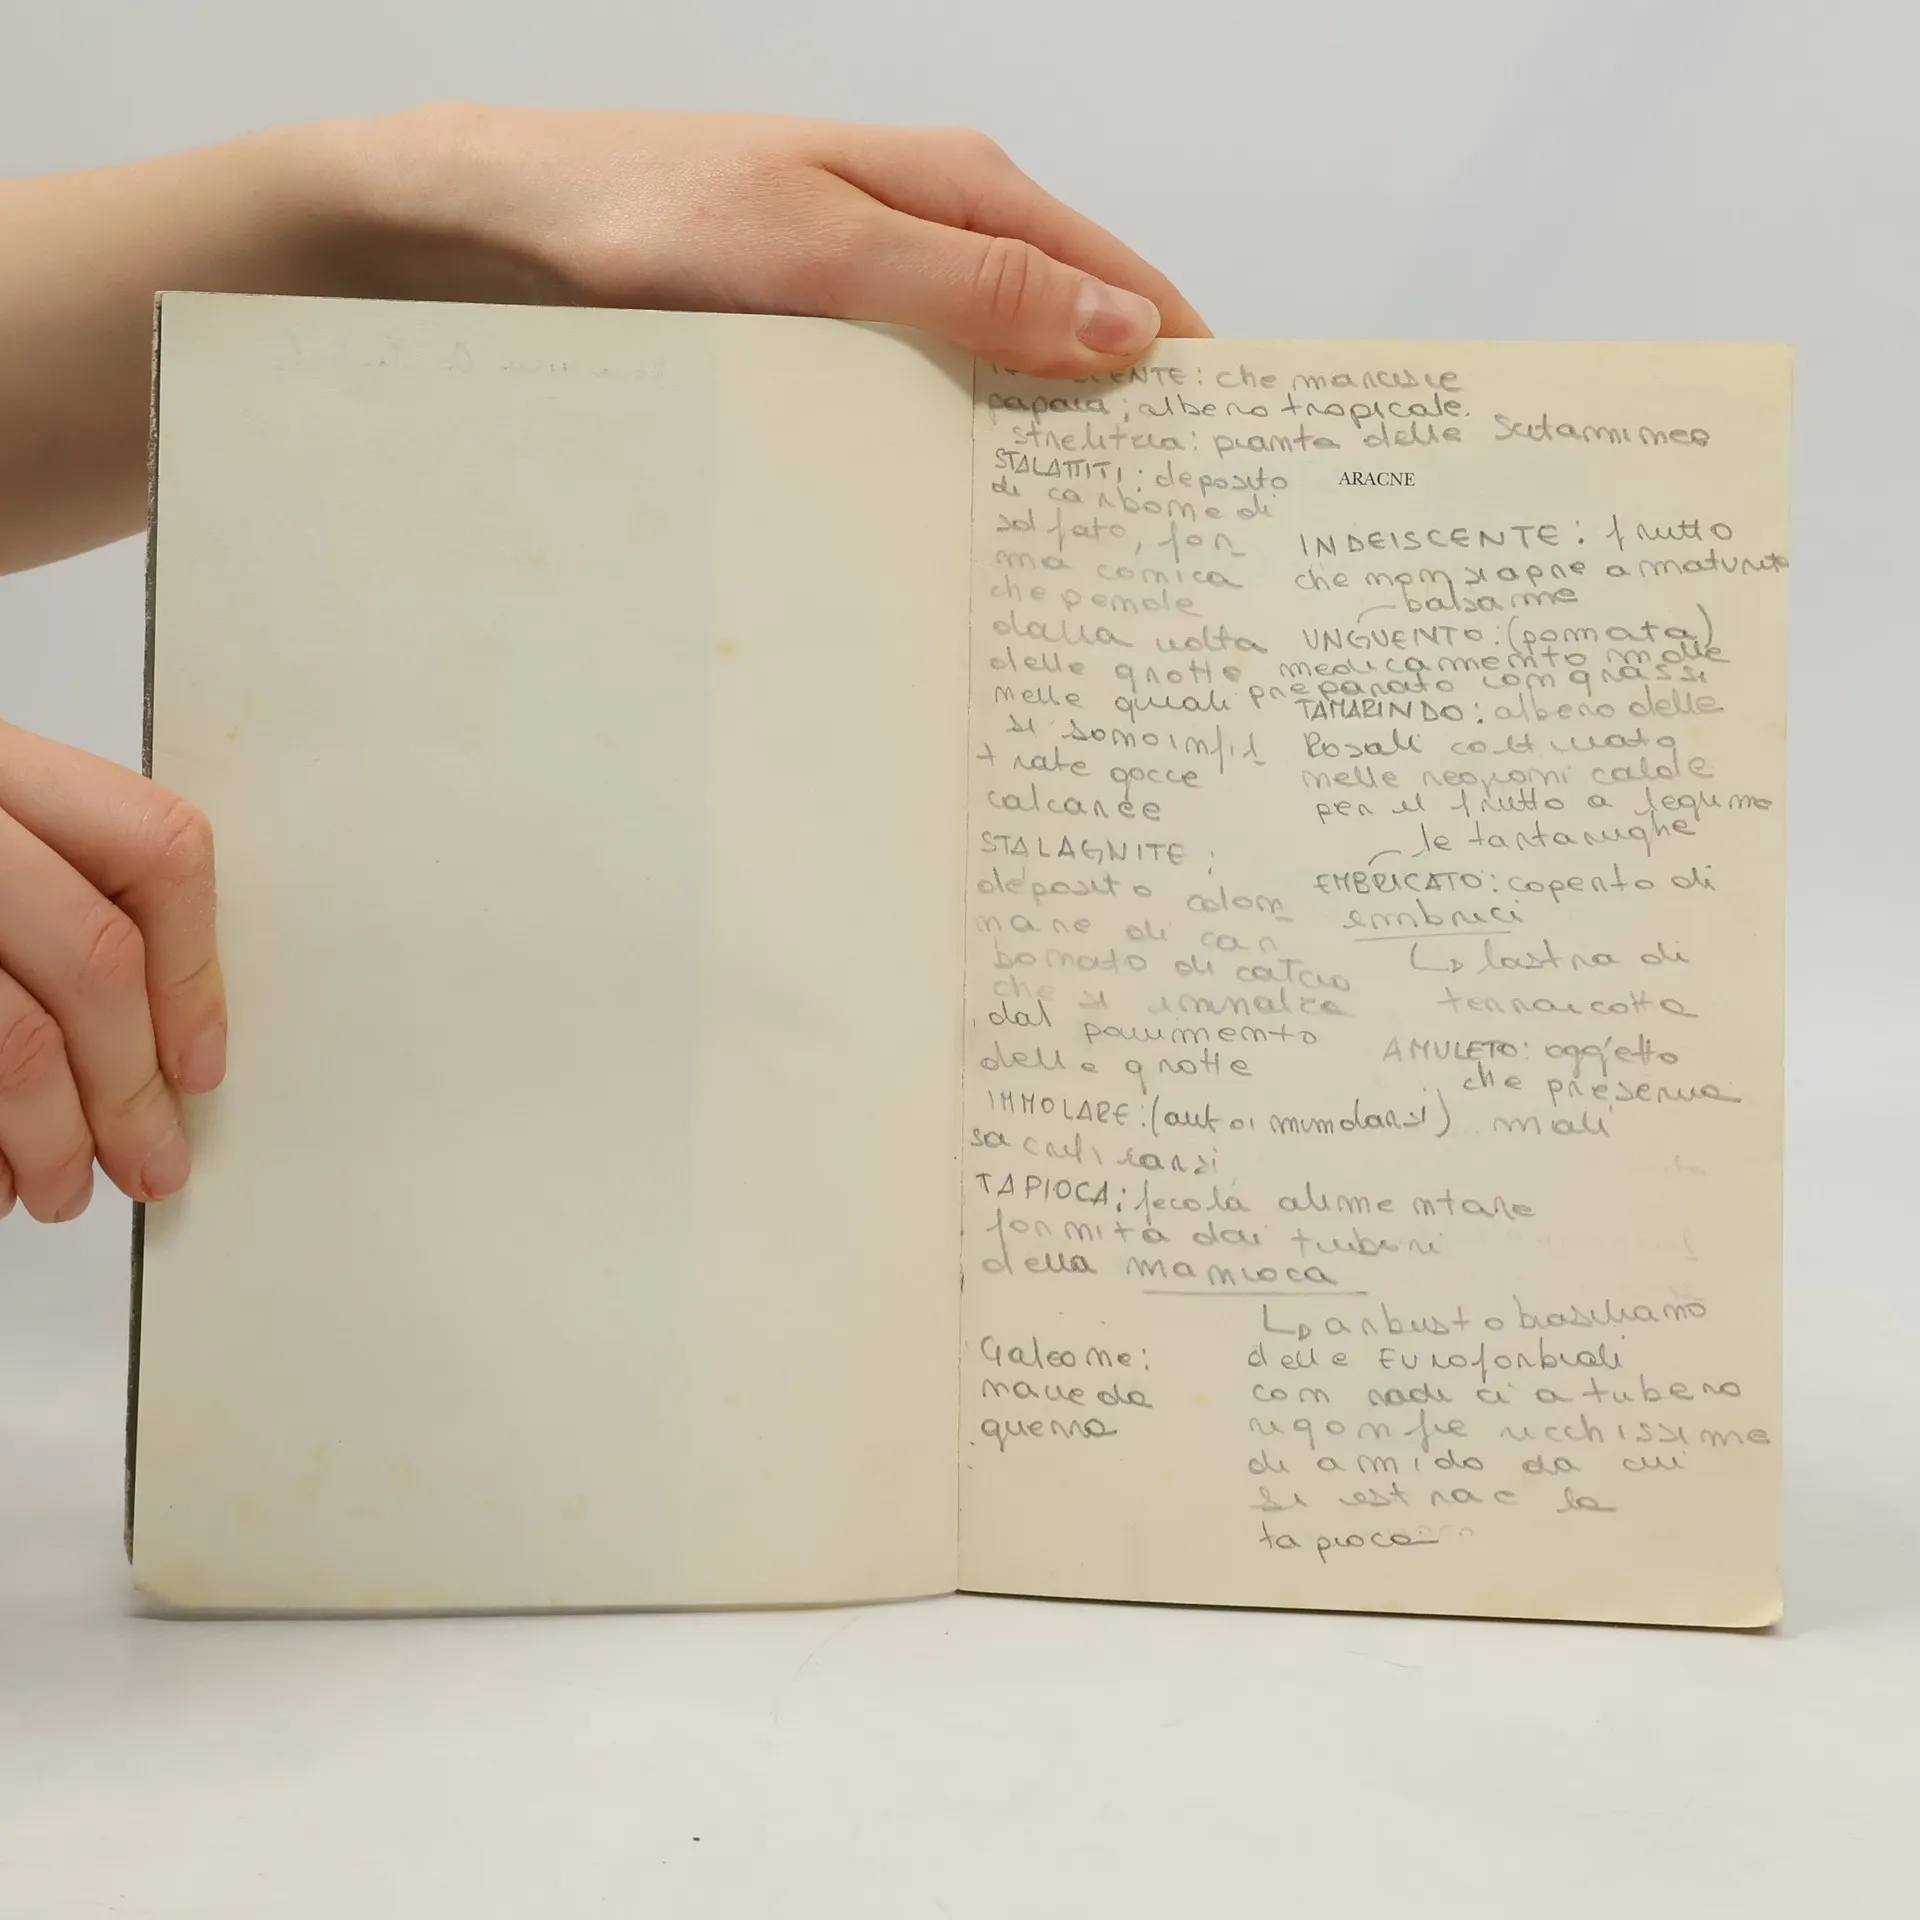 ENTE: che marcisce
papaia; albero tropicale.
strelitzia: pianta delle
STALATTITI: deposito
di carbone di
solfato, for_
ma conica
che pende
dalla volta
delle grotte
nelle quali
si sono infil_
trate gocce
calcaree
STALAGNITE:
deposito colon_
nare di car
bonato di calcio
che si innalza
dal pavimento
delle grotte
IMMOLARE: (autoimmolarsi)
sacrificarsi
TAPIOCA: fecola alimentare
fornita dai tuberi
della manioca
Galeone:
nave da
guerra
ARACNE
INDEISCENTE: frutto
che non si apre a maturità
balsame
UNGUENTO: (pomata)
medicamento molle
preparato con grassi
TAMARINDO: albero delle
Rosali coltivato
nelle regioni calde
per il frutto a legume
le tartarughe
EMBRICATO: coperto di
embrici
lastra di
terracotta
AMULETO: oggetto
che preserva
mali
arbusto brasiliano
delle Euroforbiali
con radici a tubero
rigonfie ricchissime
di amido da cui
si estrae la
tapioca